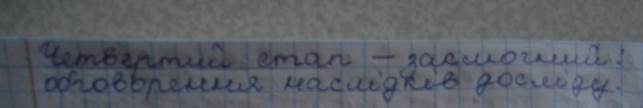 Четвертий етап – заключний:
обговорення наслідків досліду.